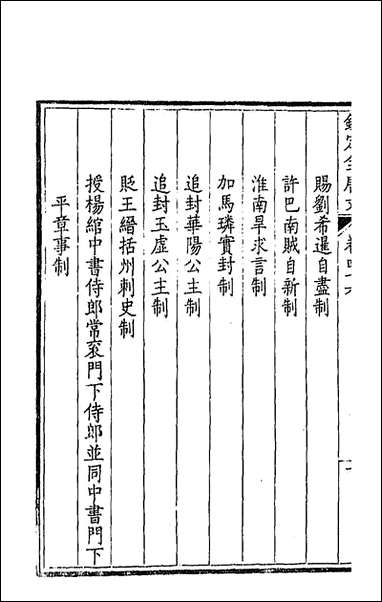 欽定全唐文 卷四十六
賜劉希暹自盡制
許巴南賊自新制
淮南旱求言制
加馬璘實封制
追封華陽公主制
追封玉虛公主制
貶王縉括州刺史制
授楊綰中書侍郎常袞門下侍郎並同中書門下
平章事制